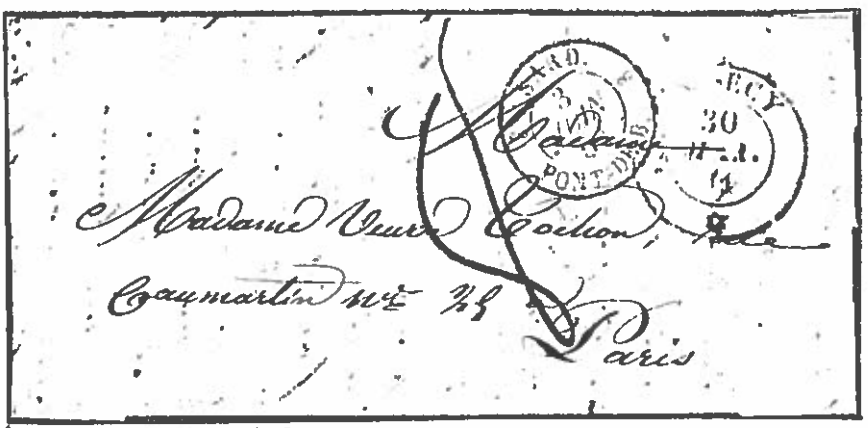 SARD.
3
PONT-DE-B.
ECY
30
11
Madame
Madame Veuve Cochon, Rue
Caumartin nº 25
Paris